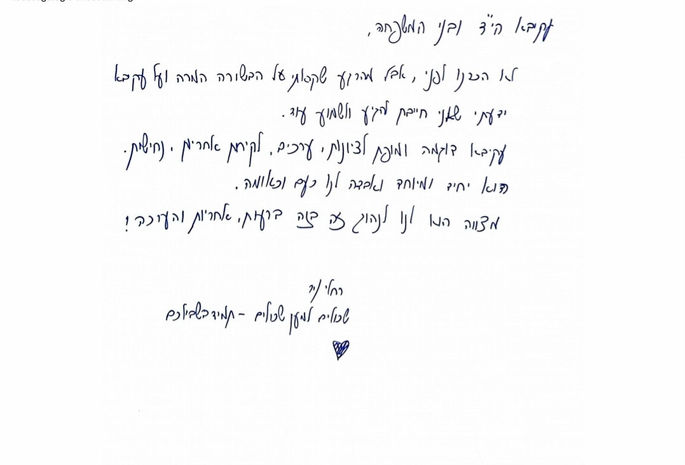 עקיבא הי"ד ובני המשפחה,
לא הכרנו לפני, אבל מהרגע שקראתי על הבשורה המרה ועל עקיבא
ידעתי שאני חייבת להגיע ולשמוע עוד.
עקיבא דוגמה ומופת לציונות, ערכים, לקיחת אחריות, נחישות.
הוא יחיד ומיוחד ואבדה לנו כעם וכאומה.
מצווה היא לנו לנהוג זה בזה ברעות, אחריות והערכה!
רחלי
שכולים למען שכולים - תמיד בשבילכם